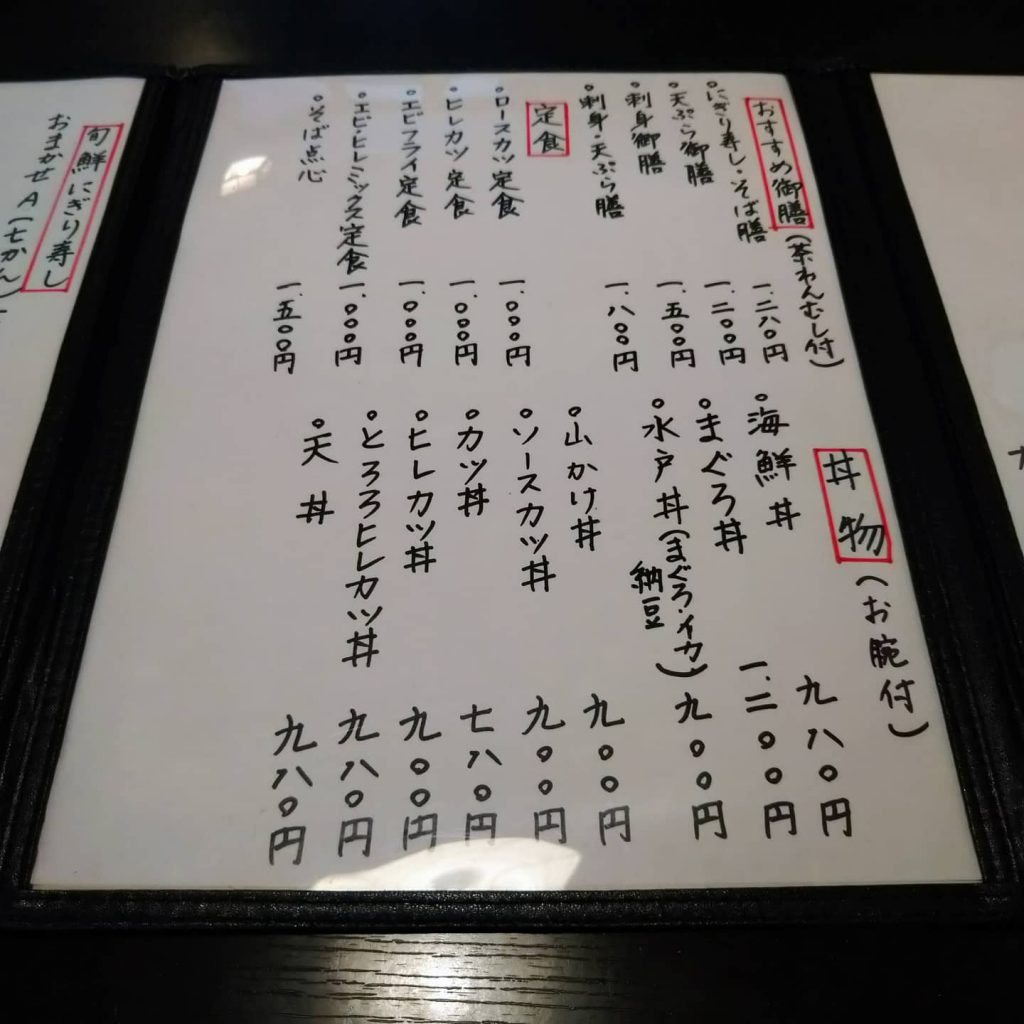 おすすめ御膳(茶わんむし付)
。にぎり寿し・そば膳 一.二八〇円
。天ぷら御膳 一.二〇〇円
。刺身御膳 一.五〇〇円
。刺身・天ぷら膳 一.八〇〇円
定食
。ロースカツ定食 一.〇〇〇円
。ヒレカツ定食 一.〇〇〇円
。エビフライ定食 一.〇〇〇円
。エビ・ヒレミックス定食 一.〇〇〇円
。そば点心 一.五〇〇円
丼物(お腕付)
。海鮮丼 九八〇円
。まぐろ丼 一.二〇〇円
。水戸丼(まぐろ・イカ 九〇〇円
納豆)
。山かけ丼 九〇〇円
。ソースカツ丼 九〇〇円
。カツ丼 七八〇円
。ヒレカツ丼 九〇〇円
。とろろヒレカツ丼 九八〇円
。天丼 九八〇円
旬鮮にぎり寿し
おまかせA(七かん)